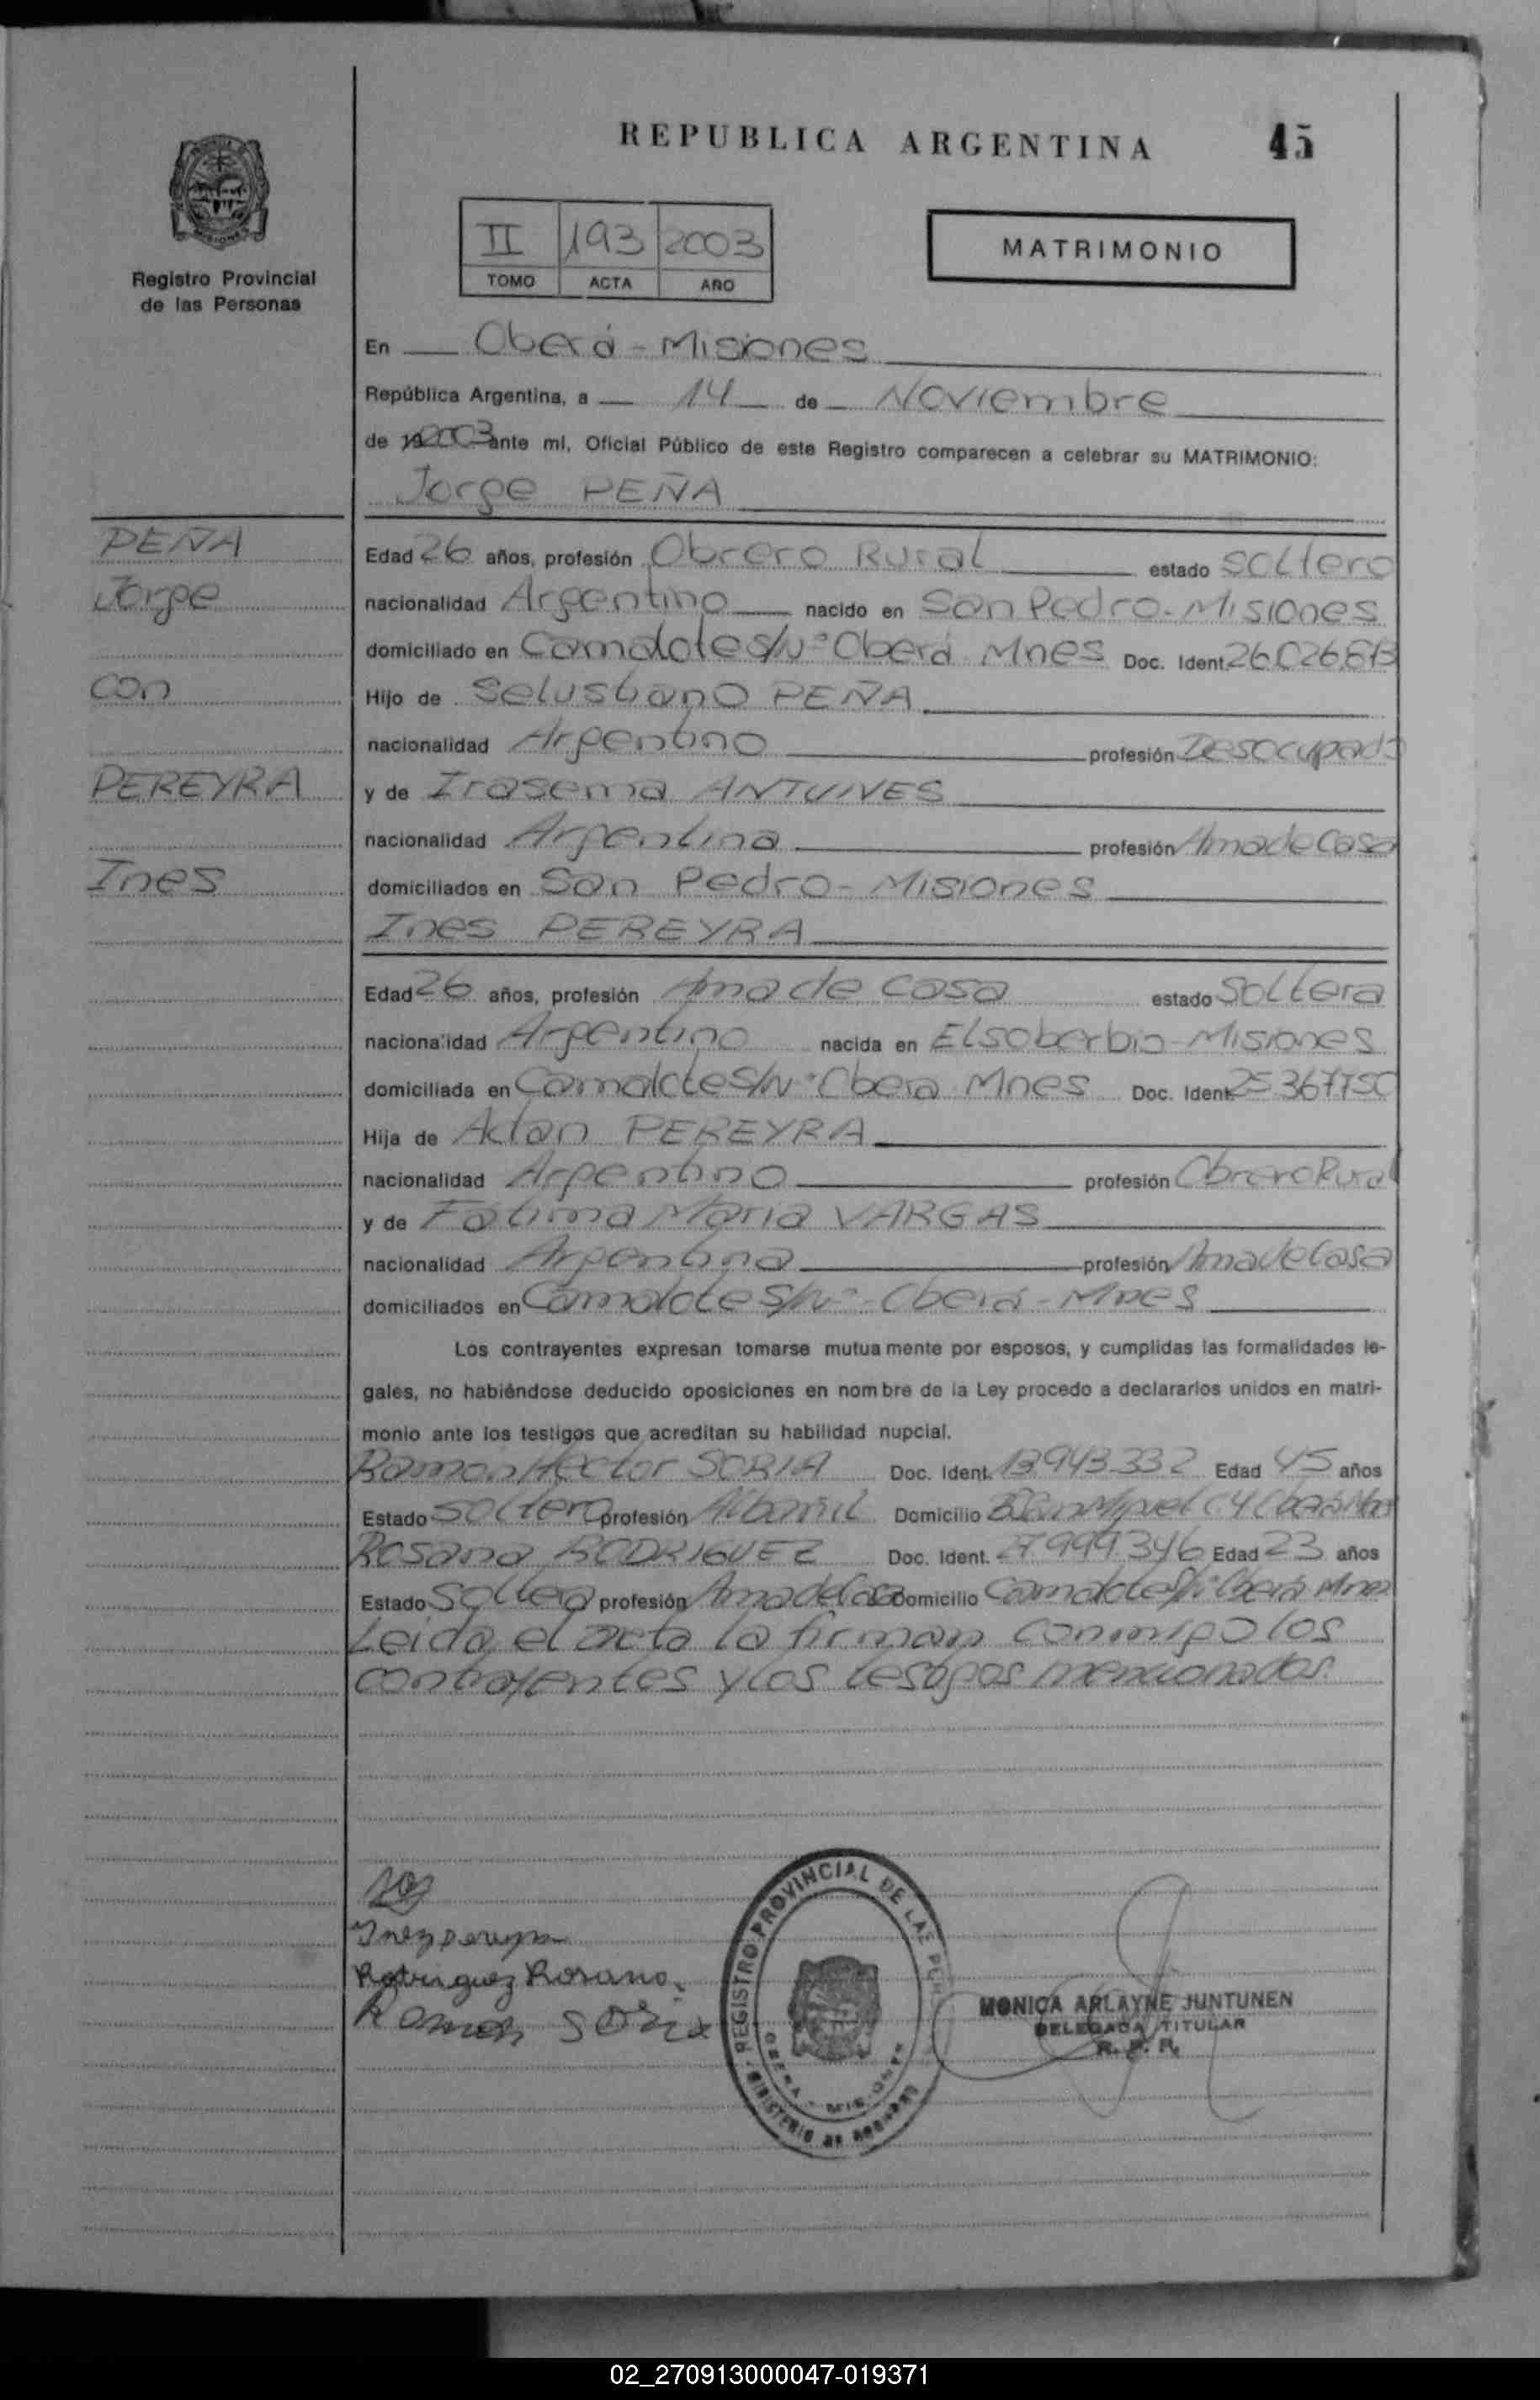 REPUBLICA ARGENTINA
45
Registro Provincial
de las Personas
II 193 2003
TOMO ACTA AÑO
MATRIMONIO
En Oberá - Misiones
República Argentina, a 14 de Noviembre
de 2003 ante mi, Oficial Público de este Registro comparecen a celebrar su MATRIMONIO:
Jorge PEÑA
PEÑA
Jorge
con
PEREYRA
Ines
Edad 26 años, profesión Obrero Rural estado soltero
nacionalidad Argentino nacido en San Pedro - Misiones
domiciliado en Camalotes s/Nº Oberá Mnes Doc. Ident.
Hijo de Selusbano PEÑA
nacionalidad Argentino profesión Desocupado
y de Irasema ANTUNES
nacionalidad Argentina profesión Ama de Casa
domiciliados en San Pedro - Misiones
Ines PEREYRA
Edad 26 años, profesión Ama de Casa estado Soltera
nacionalidad Argentino nacida en El soberbio - Misiones
domiciliada en Camalotes s/Nº Oberá Mnes Doc. Ident. 25367750
Hija de Actan PEREYRA
nacionalidad Argentino profesión Obrero Rural
y de Fatima Maria VARGAS
nacionalidad Argentina profesión Ama de Casa
domiciliados en Camalotes s/Nº - Oberá - Mnes
Los contrayentes expresan tomarse mutuamente por esposos, y cumplidas las formalidades le-
gales, no habiéndose deducido oposiciones en nombre de la Ley procedo a declararlos unidos en matri-
monio ante los testigos que acreditan su habilidad nupcial.
Ramon Hector SORIA Doc. Ident. 13943.332 Edad 45 años
Estado soltero profesión Albañil Domicilio
Rosana RODRIGUEZ Doc. Ident. 27999.346 Edad 23 años
Estado Soltera profesión Ama de Casa Domicilio Camalotes s/Nº Oberá Mnes
Leida el acta la firman conmigo los
contrayentes y los testigos mencionados.
Inez pereyra
Rodriguez Rosana.
Ramon Soria
REGISTRO PROVINCIAL DE LAS
OBERA - MISIONES
MINISTERIO DE GOBIERNO
MONICA ARLAYNE JUNTUNEN
DELEGADA TITULAR
R. P. P.
02_270913000047-019371